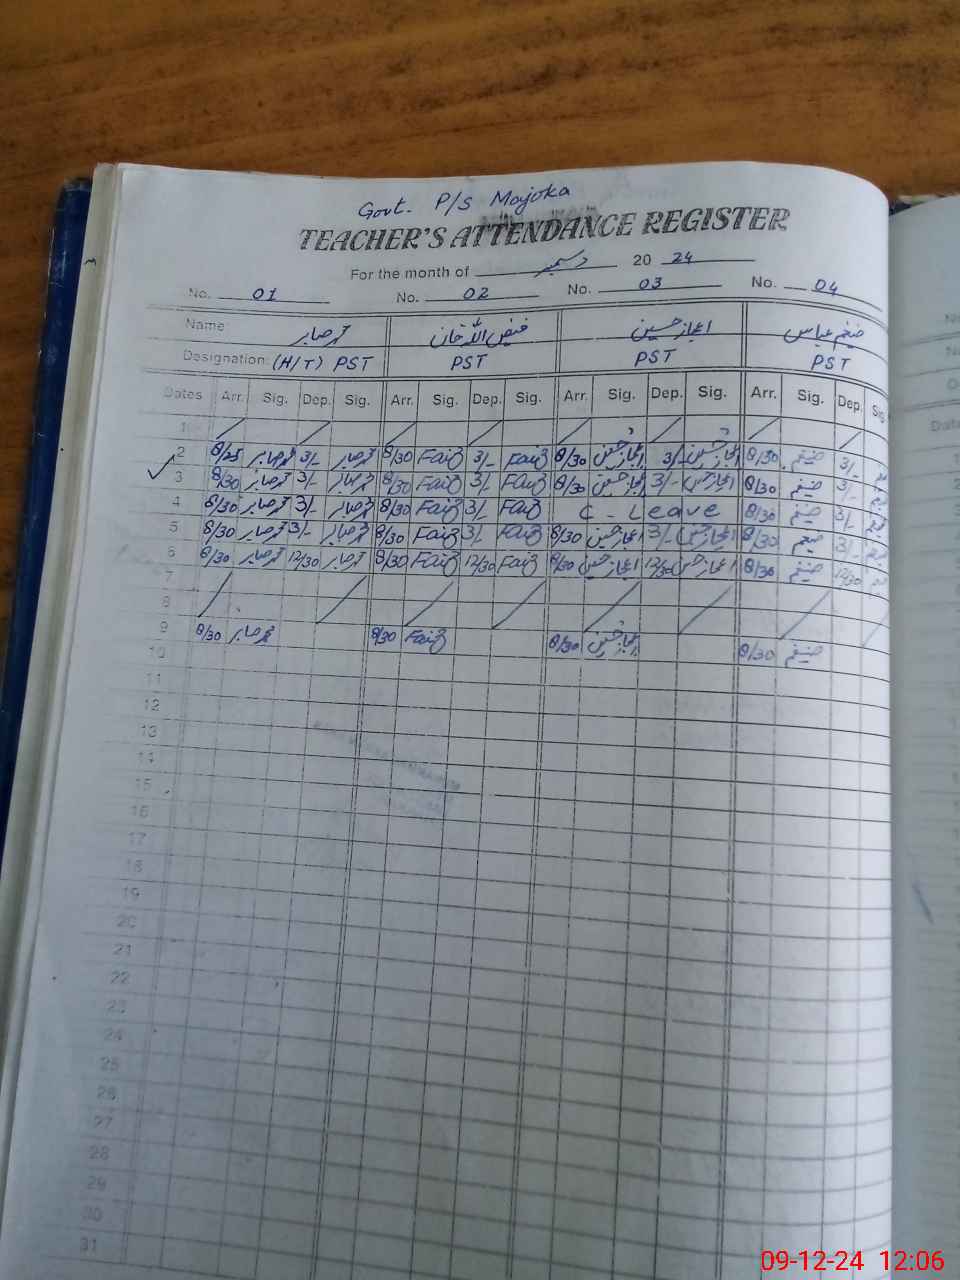 Govt. P/S Majoka
TEACHER'S ATTENDANCE REGISTER
For the month of دسمبر 20 24
No. 01 No. 02 No. 03 No. 04
Name: فیض اللہ خان اعجاز حسین ضیغم عباس
Designation: (H/T) PST PST PST PST
Dates Arr. Sig. Dep. Sig. Arr. Sig. Dep. Sig. Arr. Sig. Dep. Sig. Arr. Sig. Dep. Sig
1
2 8/25 3/- 8/30 Faiz 3/- Faiz 8/30 اعجاز حسین 3/- اعجاز حسین 8/30 ضیغم 3/-
3 8/30 3/- 8/30 Faiz 3/- Faiz 8/30 اعجاز حسین 3/- اعجاز حسین 8/30 ضیغم 3/-
4 8/30 3/- 8/30 Faiz 3/- Faiz C - Leave 8/30 ضیغم 3/-
5 8/30 3/- 8/30 Faiz 3/- Faiz 8/30 اعجاز حسین 3/- اعجاز حسین 8/30 ضیغم 3/-
6 8/30 12/30 8/30 Faiz 12/30 Faiz 8/30 اعجاز حسین 12/30 اعجاز حسین 8/30 ضیغم 12/30
7
8
9 8/30 8/30 Faiz 8/30 اعجاز حسین 8/30 ضیغم
10
11
12
13
14
15
16
17
18
19
20
21
22
23
24
25
26
27
28
29
30
31
09-12-24 12:06